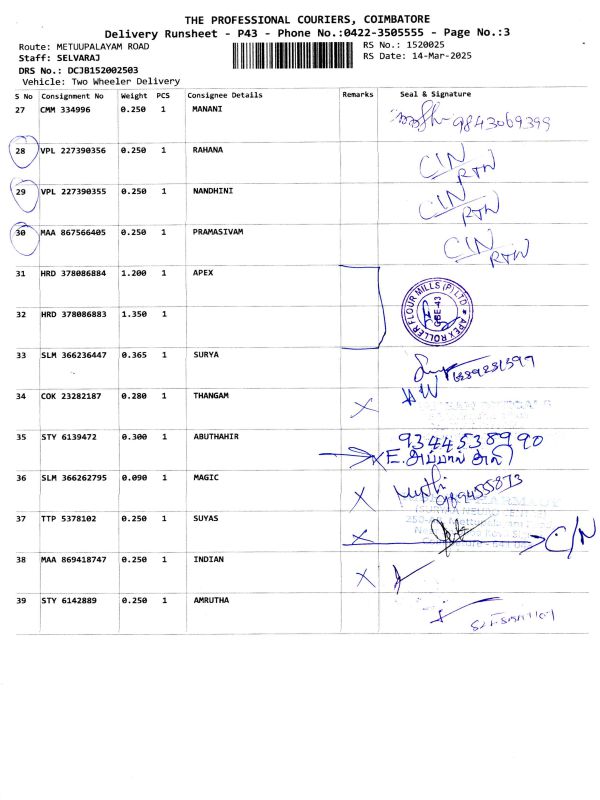 THE PROFESSIONAL COURIERS, COIMBATORE
Delivery Runsheet - P43 - Phone No.:0422-3505555 - Page No.:3
Route: METUUPALAYAM ROAD RS No.: 1520025
Staff: SELVARAJ RS Date: 14-Mar-2025
DRS No.: DCJB152002503
Vehicle: Two Wheeler Delivery
S No Consignment No Weight PCS Consignee Details Remarks Seal & Signature
27 CMM 334996 0.250 1 MANANI 9843069399
28 VPL 227390356 0.250 1 RAHANA C/N RTN
29 VPL 227390355 0.250 1 NANDHINI C/N RTN
30 MAA 867566405 0.250 1 PRAMASIVAM C/N RTN
31 HRD 378086884 1.200 1 APEX
APEX ROLLER FLOUR MILLS (P) LTD
CBE-43
32 HRD 378086883 1.350 1
33 SLM 366236447 0.365 1 SURYA
34 COK 23282187 0.280 1 THANGAM X
35 STY 6139472 0.300 1 ABUTHAHIR 9344538990
X E.அப்பாஸ் அலி
36 SLM 366262795 0.090 1 MAGIC X 9894555873
37 TTP 5378102 0.250 1 SUYAS X C/N
38 MAA 869418747 0.250 1 INDIAN X
39 STY 6142889 0.250 1 AMRUTHA